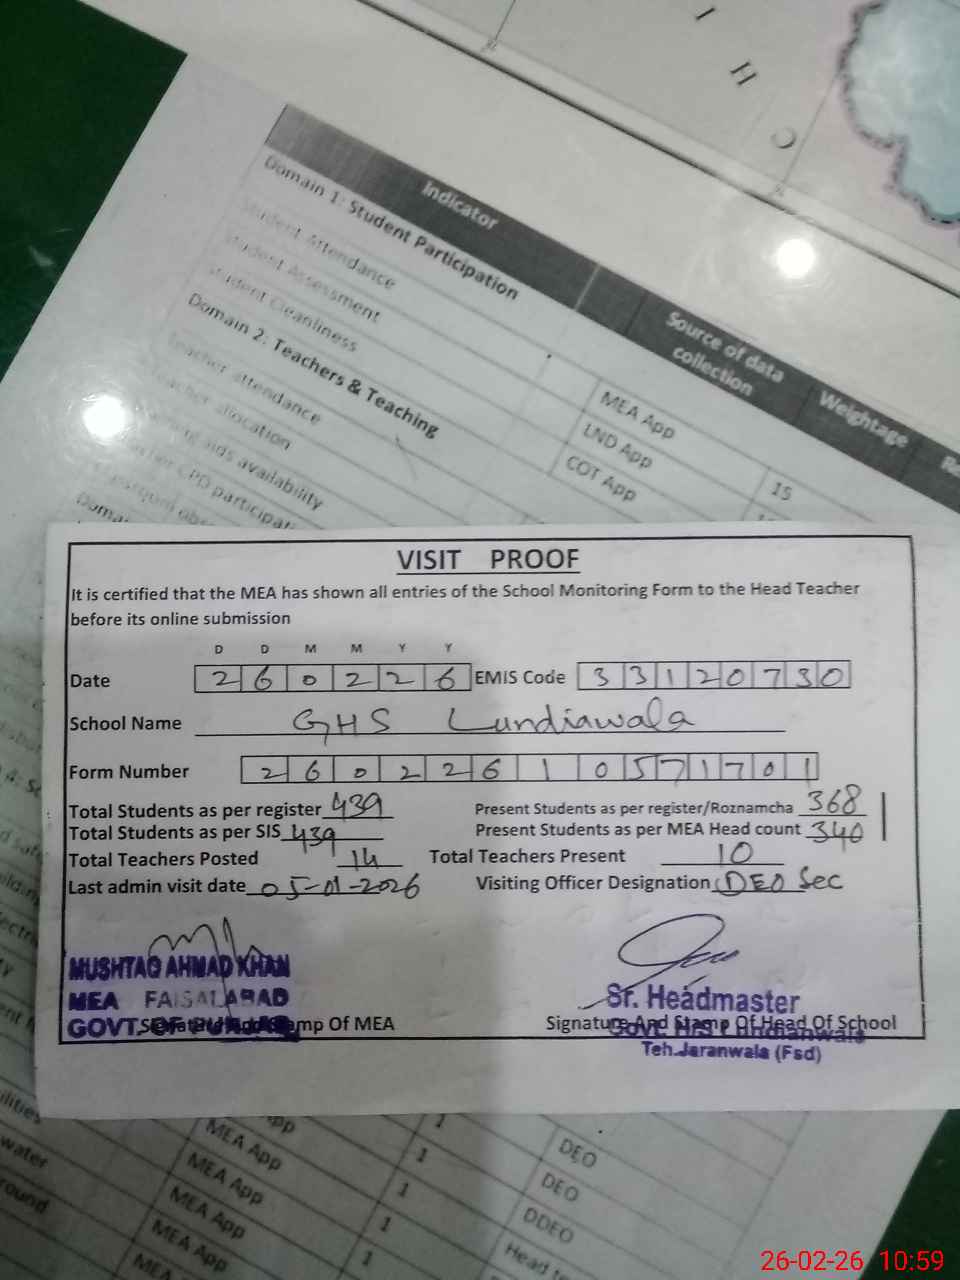 I
H
C
Indicator
Source of data collection
Weightage
Domain 1: Student Participation
Student Attendance
Student Assessment
Student Cleanliness
MEA App
LND App
COT App
15
Domain 2: Teachers & Teaching
Teacher attendance
Teacher allocation
aids availability
CPD participat
VISIT PROOF
It is certified that the MEA has shown all entries of the School Monitoring Form to the Head Teacher
before its online submission
D D M M Y Y
Date 2 6 0 2 2 6 EMIS Code 3 3 1 2 0 7 3 0
School Name GHS Lundiawala
Form Number 2 6 0 2 2 6 1 0 5 7 1 7 0 1
Total Students as per register 439 Present Students as per register/Roznamcha 368
Total Students as per SIS 439 Present Students as per MEA Head count 340
Total Teachers Posted 14 Total Teachers Present 10
Last admin visit date 05-01-2026 Visiting Officer Designation DEO Sec
MUSHTAQ AHMAD KHAN
MEA FAISALABAD
GOVT. OF PUNJAB
Sr. Headmaster
Signature And Stamp Of MEA Signature And Stamp Of Head Of School
Teh.Jaranwala (Fsd)
MEA App 1 DEO
MEA App 1 DEO
MEA App 1 DDEO
MEA App 1 Head
MEA
water
26-02-26 10:59